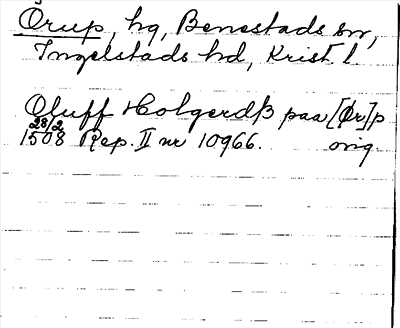 Örup, hg, Benestads sn,
Ingelstads hd, Krist. l.
Oluff Holgerdß paa [Ør]p
28/2
1508 Rep. II nr 10966. orig.